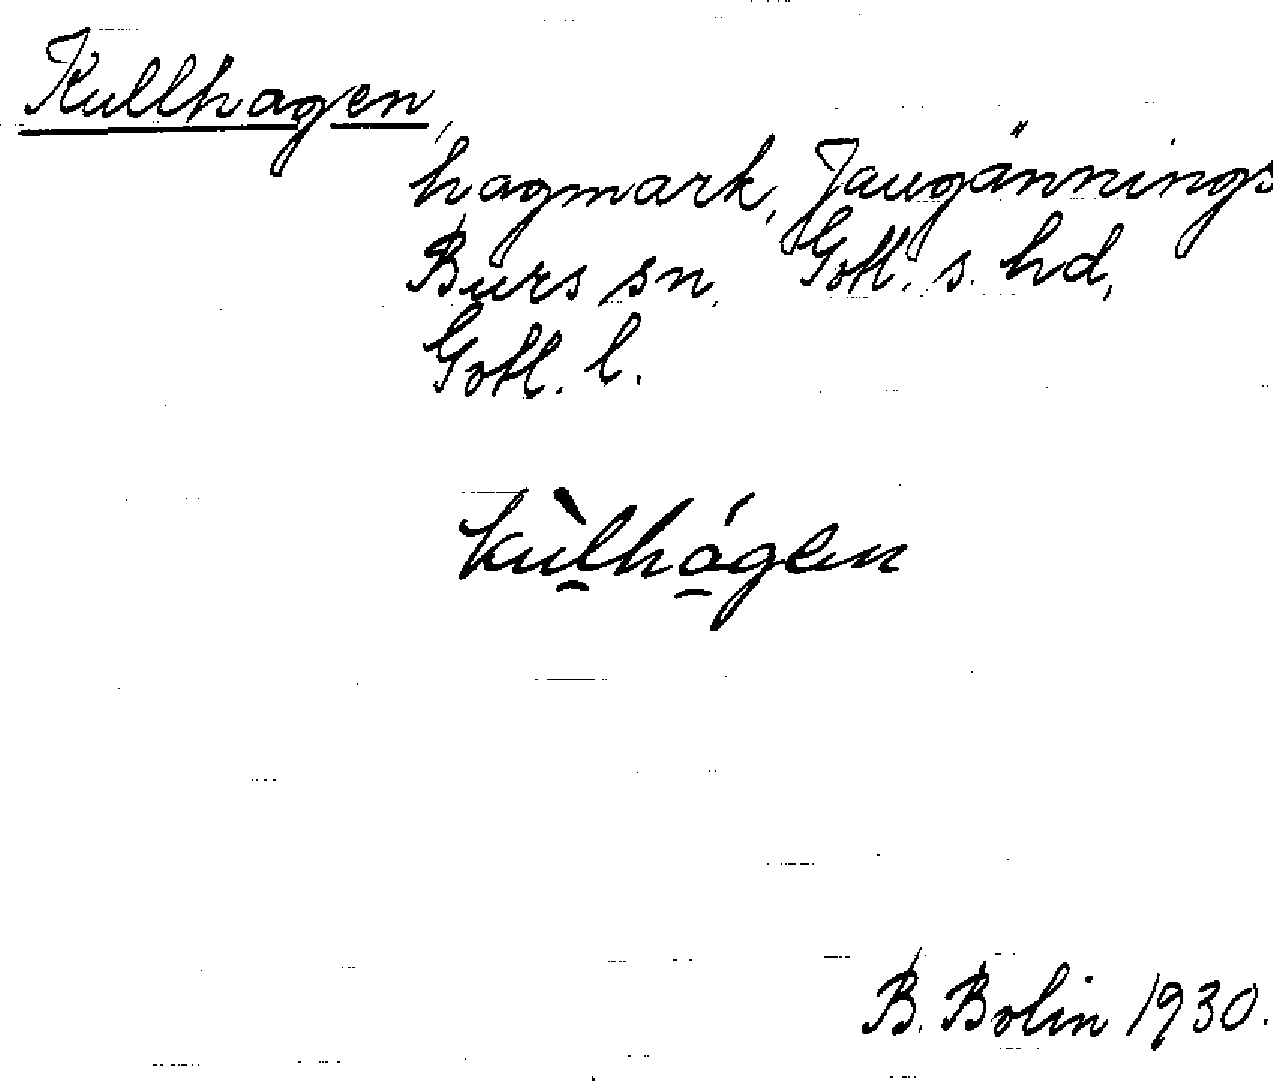 Kullhagen,
hagmark, Jaugännings
Burs sn, Gotl. s. hd,
Gotl. l.
kùlhágen
B. Bolin 1930.